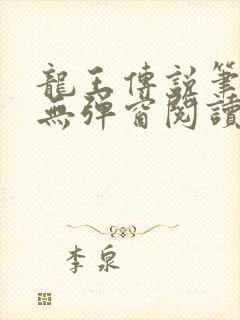 龍王傳說筆
無彈窗閱讀
李泉